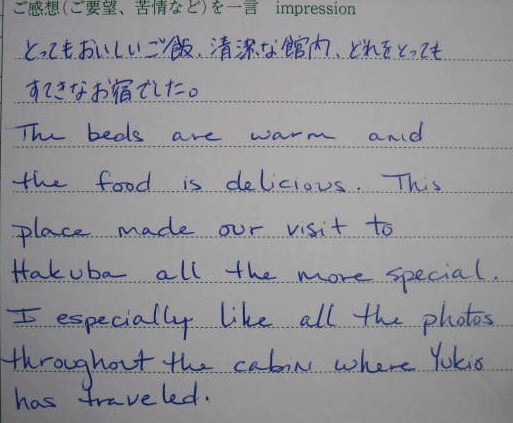 ご感想(ご要望、苦情など)を一言 impression
とってもおいしいご飯、清潔な館内、どれをとっても
すてきなお宿でした。
The beds are warm and
the food is delicious. This
place made our visit to
Hakuba all the more special.
I especially like all the photos
throughout the cabin where Yukio
has traveled.